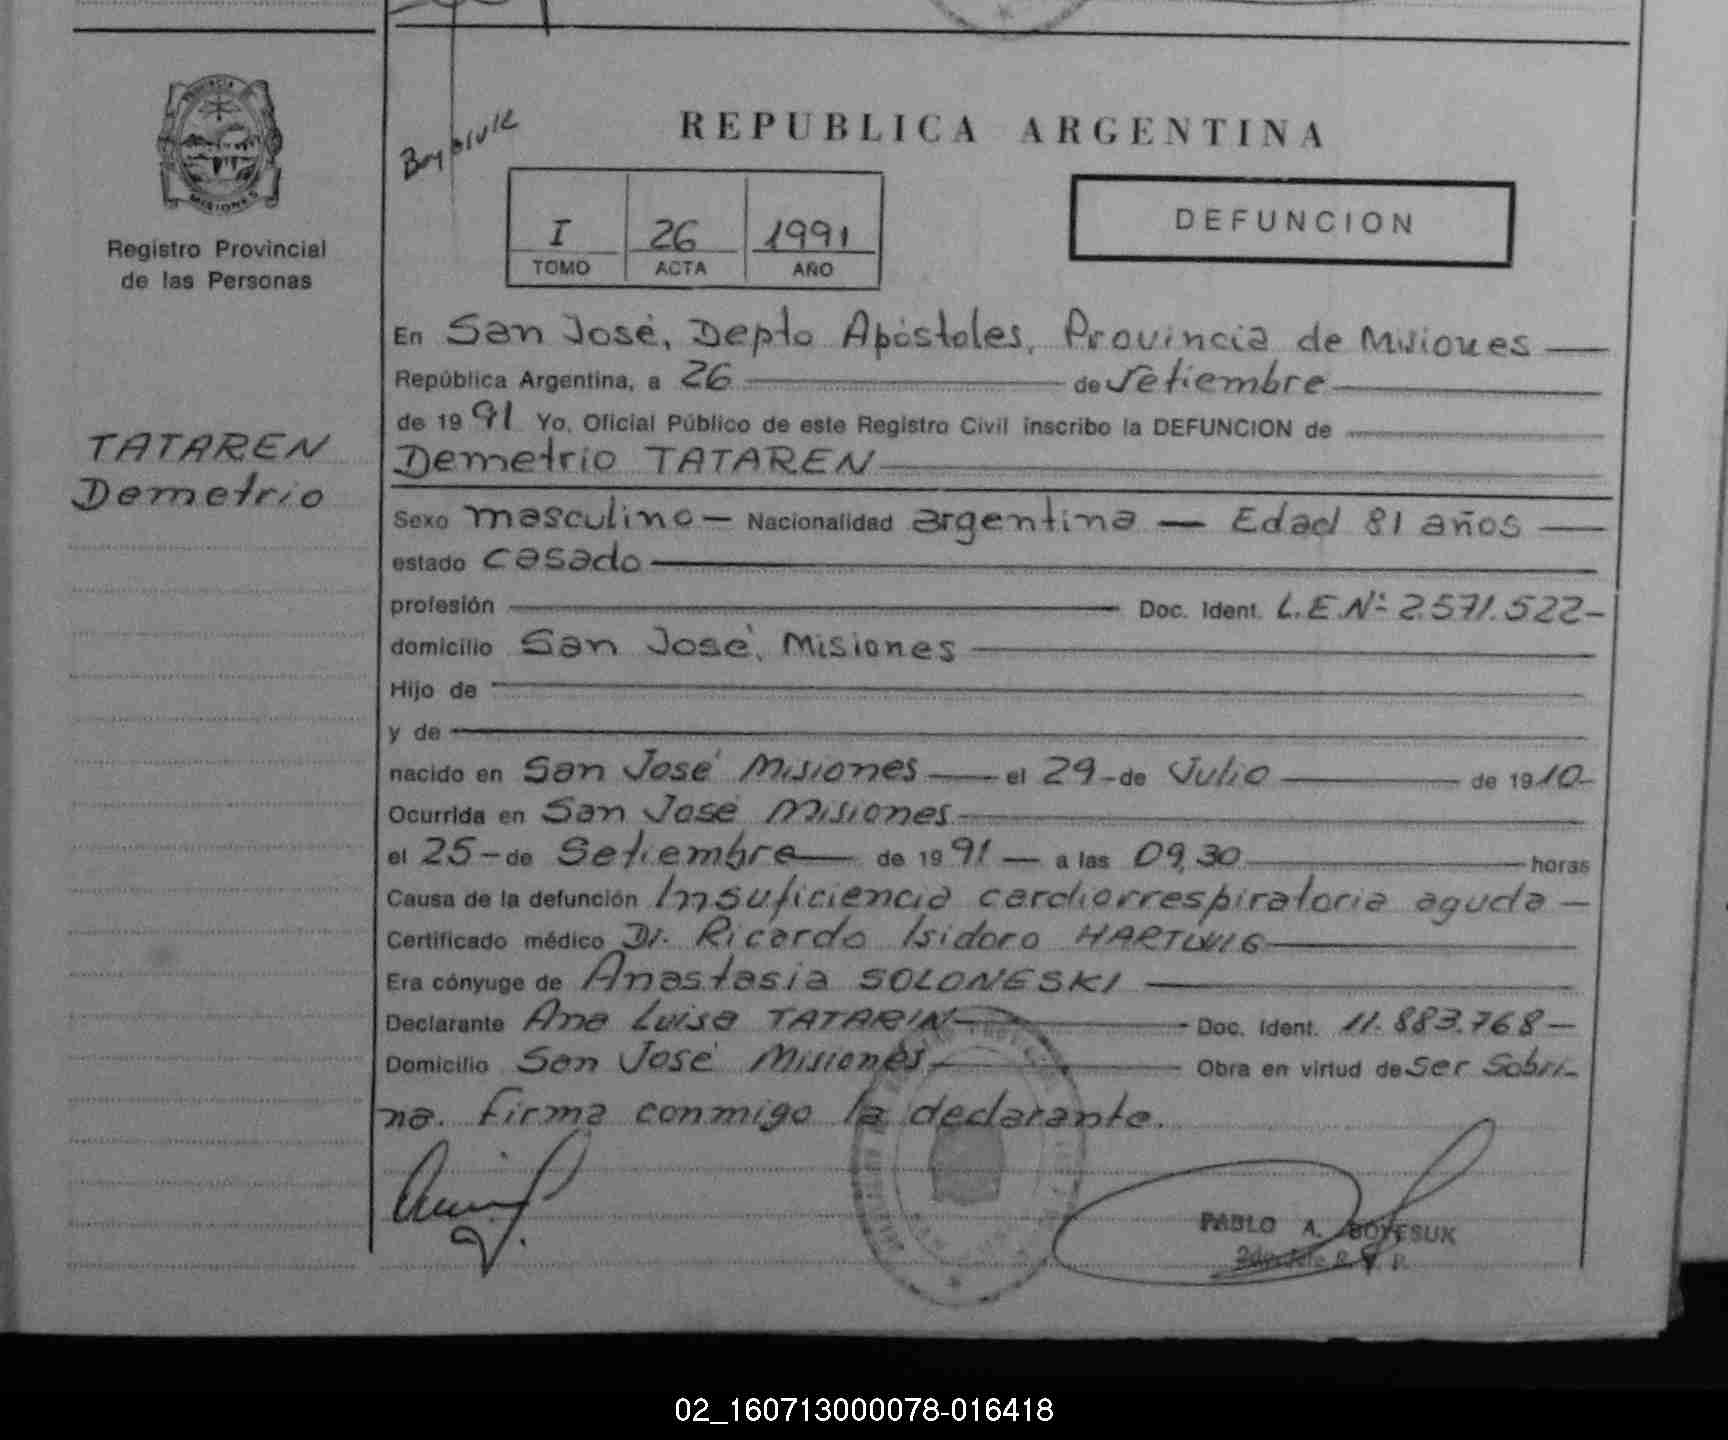 PROVINCIA
MISIONES
Registro Provincial
de las Personas
TATAREN
Demetrio
REPUBLICA ARGENTINA
I 26 1991
TOMO ACTA AÑO
DEFUNCION
En San José, Depto Apóstoles, Provincia de Misiones
República Argentina, a 26 de Setiembre
de 1991 Yo, Oficial Público de este Registro Civil inscribo la DEFUNCION de
Demetrio TATAREN
Sexo masculino - Nacionalidad argentina - Edad 81 años
estado casado
profesión Doc. Ident. L.E.Nº 2.571.522-
domicilio San José, Misiones
Hijo de
y de
nacido en San José Misiones el 29-de Julio de 1910-
Ocurrida en San José Misiones
el 25-de Setiembre de 1991 - a las 09,30 horas
Causa de la defunción Insuficiencia cardiorrespiratoria aguda -
Certificado médico Dr. Ricardo Isidoro HARTWIG
Era cónyuge de Anastasia SOLONESKI
Declarante Ana Luisa TATARIN Doc. Ident. 11.883.768-
Domicilio San José Misiones Obra en virtud de ser sobri-
na. Firma conmigo la declarante.
PABLO A. BOYESUK
02_160713000078-016418